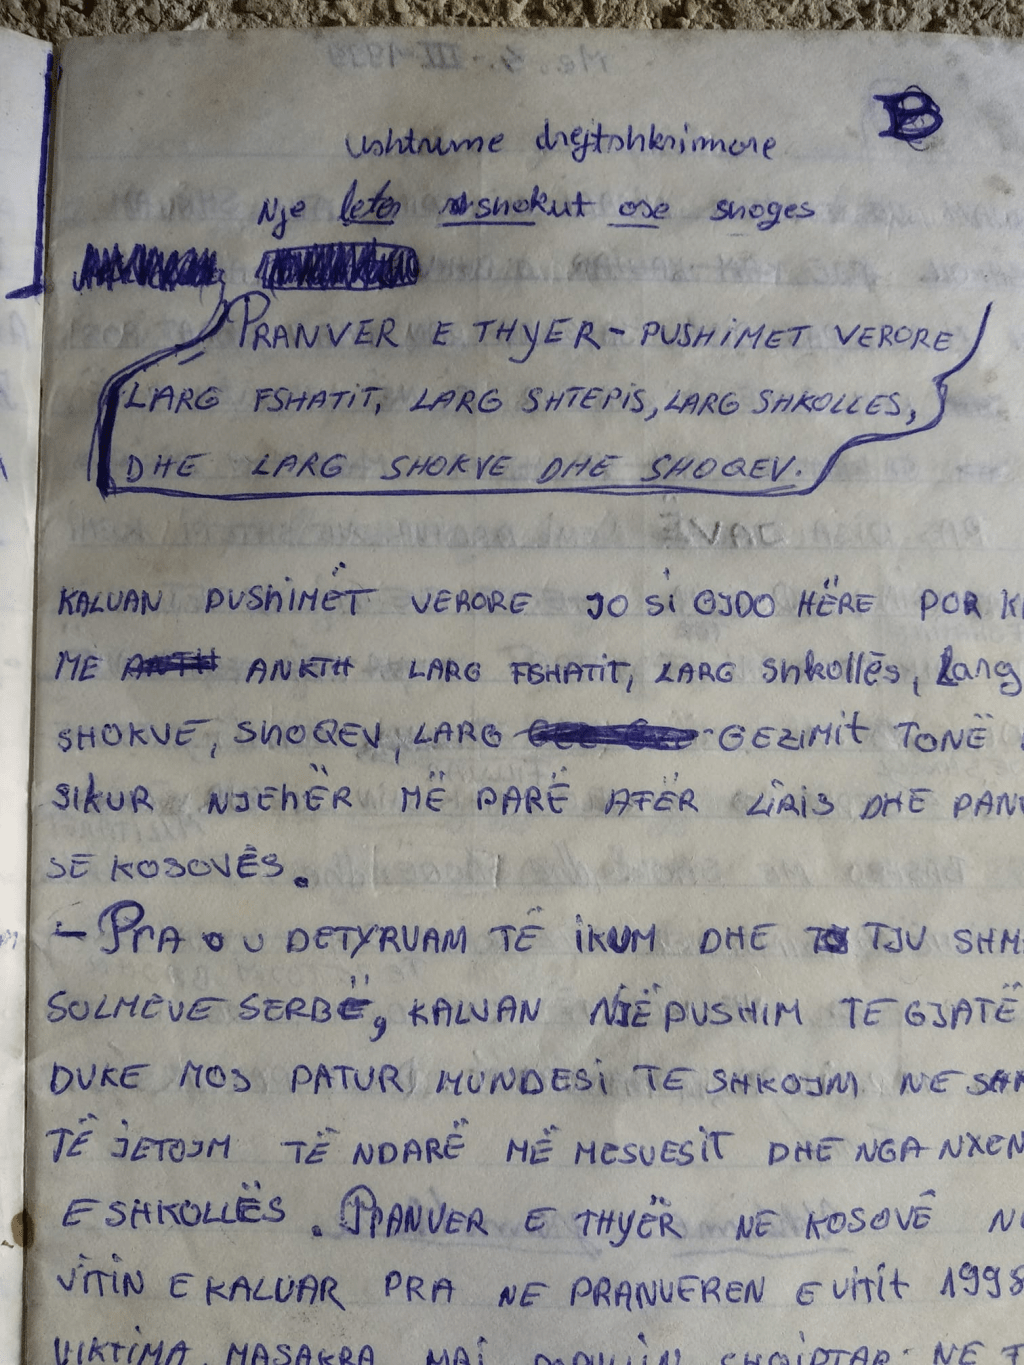 B
Ushtrume drejtshkrimore
Nje leter shokut ose shoqes
PRANVER E THYER - PUSHIMET VERORE
LARG FSHATIT, LARG SHTEPIS, LARG SHKOLLES,
DHE LARG SHOKVE DHE SHOQEV.
KALUAN PUSHIMËT VERORE JO SI GJDO HËRE POR
ME ANKTH LARG FSHATIT, LARG ShkollËs, Larg
SHOKVE, SHOQEV, LARG GEZIMIT TONË
SIKUR NJEHËR MË PARË AFËR LIRIS DHE
SE KOSOVËS.
- PRA U DETYRUAM TË IKUM DHE TJU
SULMEVE SERBË, KALUAN NJË PUSHIM TE GJATË
DUKE MOS PATUR MUNDESI TE SHKOJM NE
TË JETOJM TË NDARË MË MESUESIT DHE NGA
E SHKOLLËS. PRANVER E THYËR NE KOSOVË
VITIN E KALUAR PRA NE PRANVEREN E VITIT 1998
VIKTIMA, MASAKRA